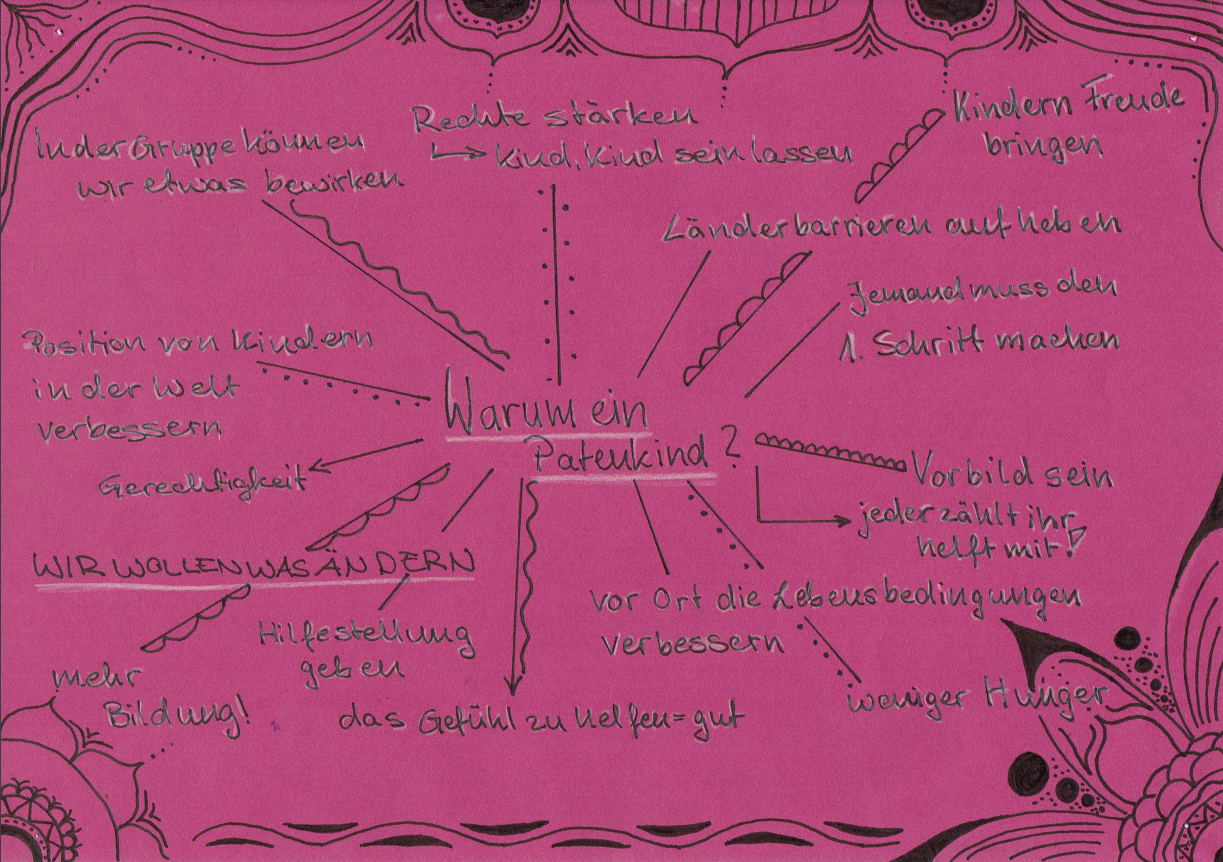 In der Gruppe können
wir etwas bewirken
Rechte stärken
Kind, Kind sein lassen
Kindern Freude
bringen
Länderbarrieren aufheben
Jemand muss den
1. Schritt machen
Position von Kindern
in der Welt
verbessern
Warum ein
Patenkind?
Gerechtigkeit
Vorbild sein
jeder zählt ihr
helft mit!
WIR WOLLEN WAS ÄNDERN
vor Ort die Lebensbedingungen
verbessern
Hilfestellung
geben
mehr
Bildung!
das Gefühl zu helfen = gut
weniger Hunger